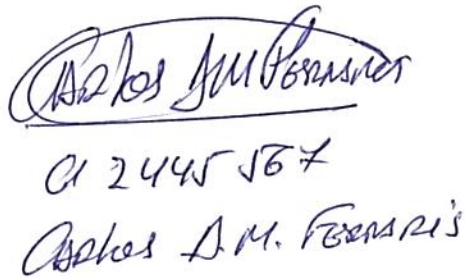 Carlos A M Ferraris
CI 2445 567
Carlos A.M. Ferraris